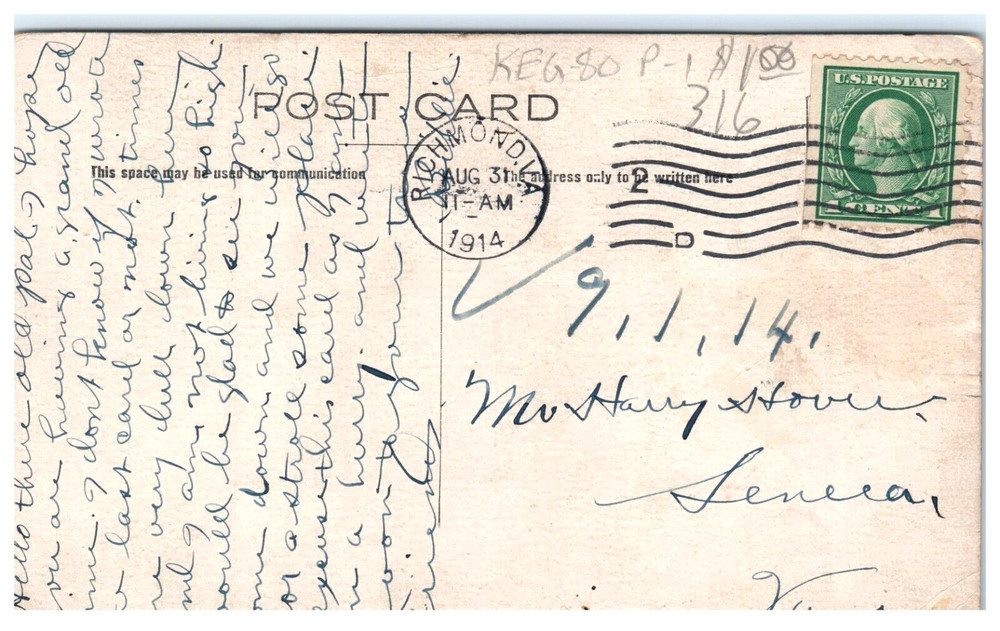 KEG80 P-1 $1.00
316
POST CARD
This space may be used for communication
The address only to be written here
RICHMOND, VA
AUG 31
11-AM
1914
2
D
U.S. POSTAGE
1 CENT 1
9, 1, 14,
Mr Harry Stover.
Seneca,
Hello there old pal I hope
you are having a grand old
time. I dont know if I wrote
last card or not. times
are very dull down here
and I am not living so high
would be glad to see you
come down and we will go
for a stroll some place
excuse this card as I am
in a hurry and will
to your
Friend